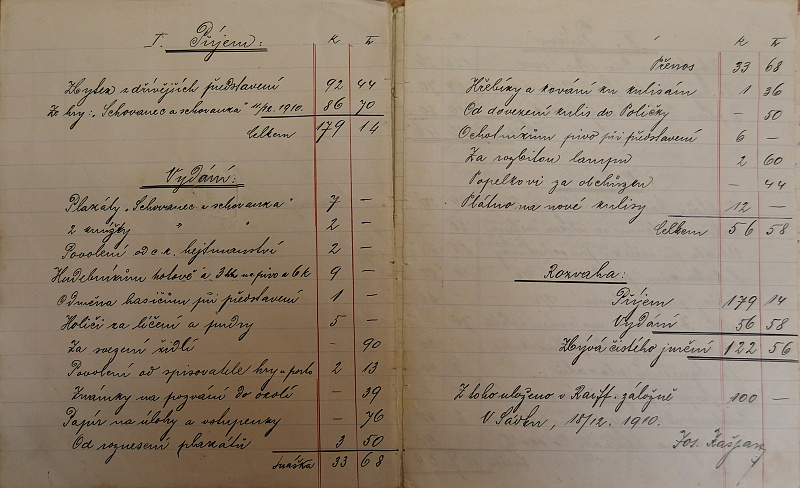 I. Příjem:
K h
Zbytek z dřívějších představení 92 44
Ze hry: „Schovanec a schovanka" 11/12. 1910. 86 70
Celkem 179 14
Vydání:
Plakáty „Schovanec a schovanka" 7 —
2 knížky " " 2 —
Povolení od c. k. hejtmanství 2 —
Hudebníkům hotově a 3 na pivo a 6 k 9 —
Odměna hasičům při představení 1 —
Holiči za líčení a pudry 5 —
Za svezení židlí — 90
Povolení od spisovatele hry a porto 2 13
Známky na pozvání do okolí — 39
Papír na úlohy a vstupenky — 76
Od roznesení plakátů 3 50
Snáška 33 68
K h
Přenos 33 68
Hřebíky a kování ku kulisám 1 36
Od dovezení kulis do Poličky — 50
Ochotníkům pivo při představení 6 —
Za rozbitou lampu 2 60
Popelkovi za obchůzku — 44
Plátno na nové kulisy 12 —
Celkem 56 58
Rozvaha:
Příjem 179 14
Vydání 56 58
Zbývá čistého jmění 122 56
Z toho uloženo v Raiff. záložně 100 —
V Sádku, 18/12. 1910.
Jos. Kašpar